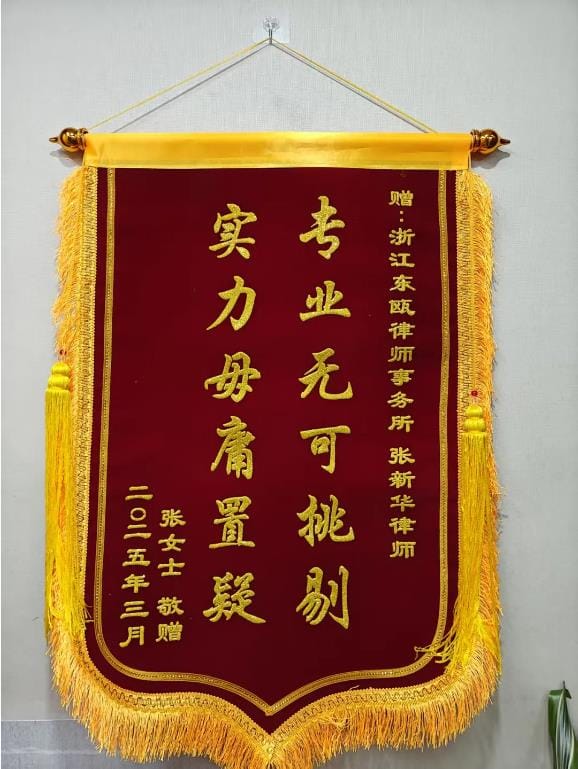 赠：浙江东瓯律师事务所 张新华律师
专业无可挑剔
实力毋庸置疑
张女士 敬赠
二〇二五年三月